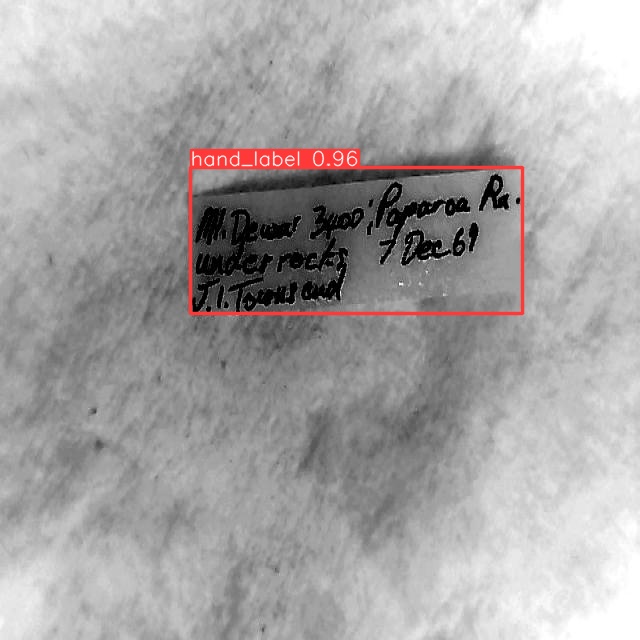 hand_label 0.96
Mt. Dewar 3400'; Paparoa Ra.
under rocks 7 Dec 69
J.I. Townsend